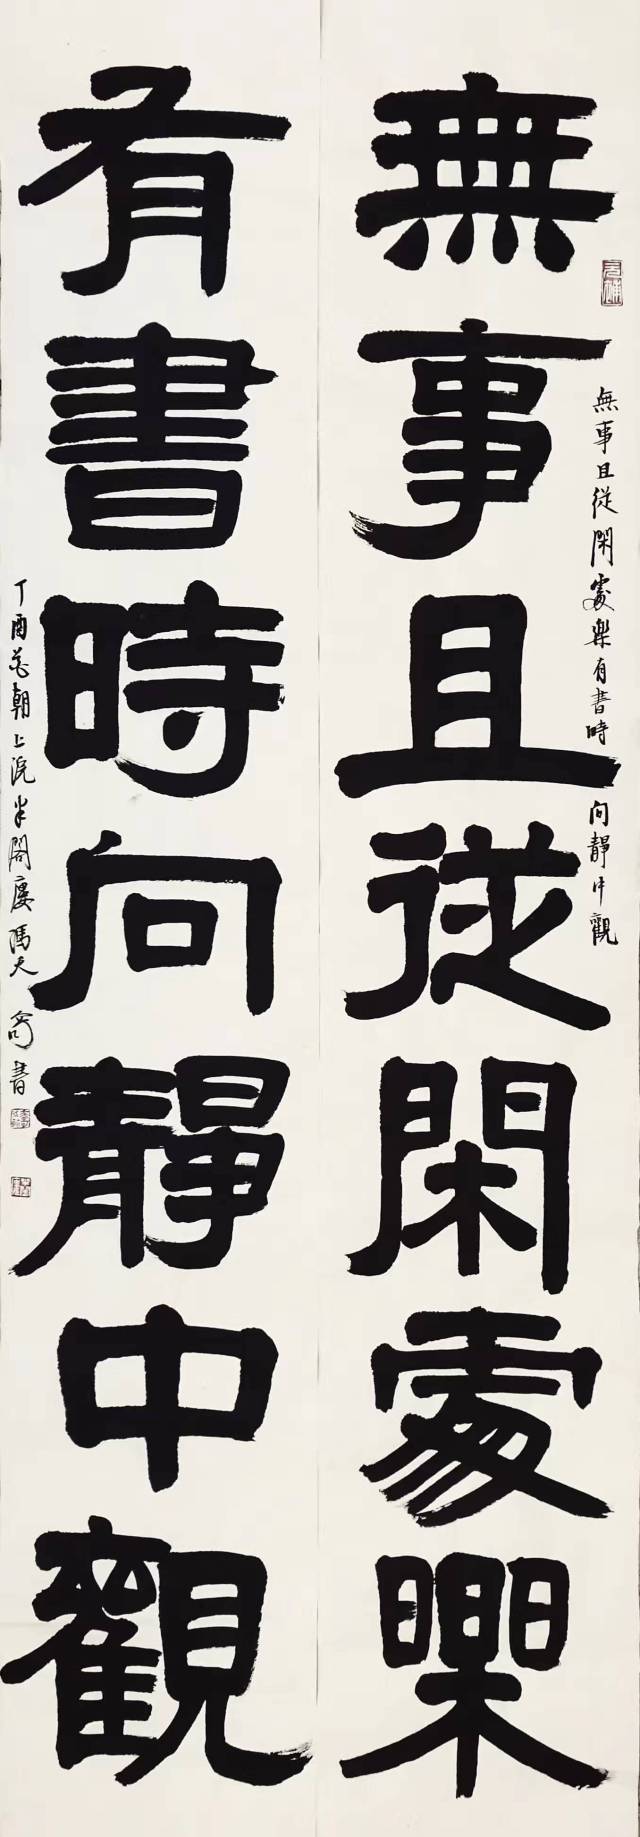 無事且從閑處樂
有書時向靜中觀
無事且從閑處樂有書時向靜中觀
丁酉花朝上浣半閣廔馮天
書